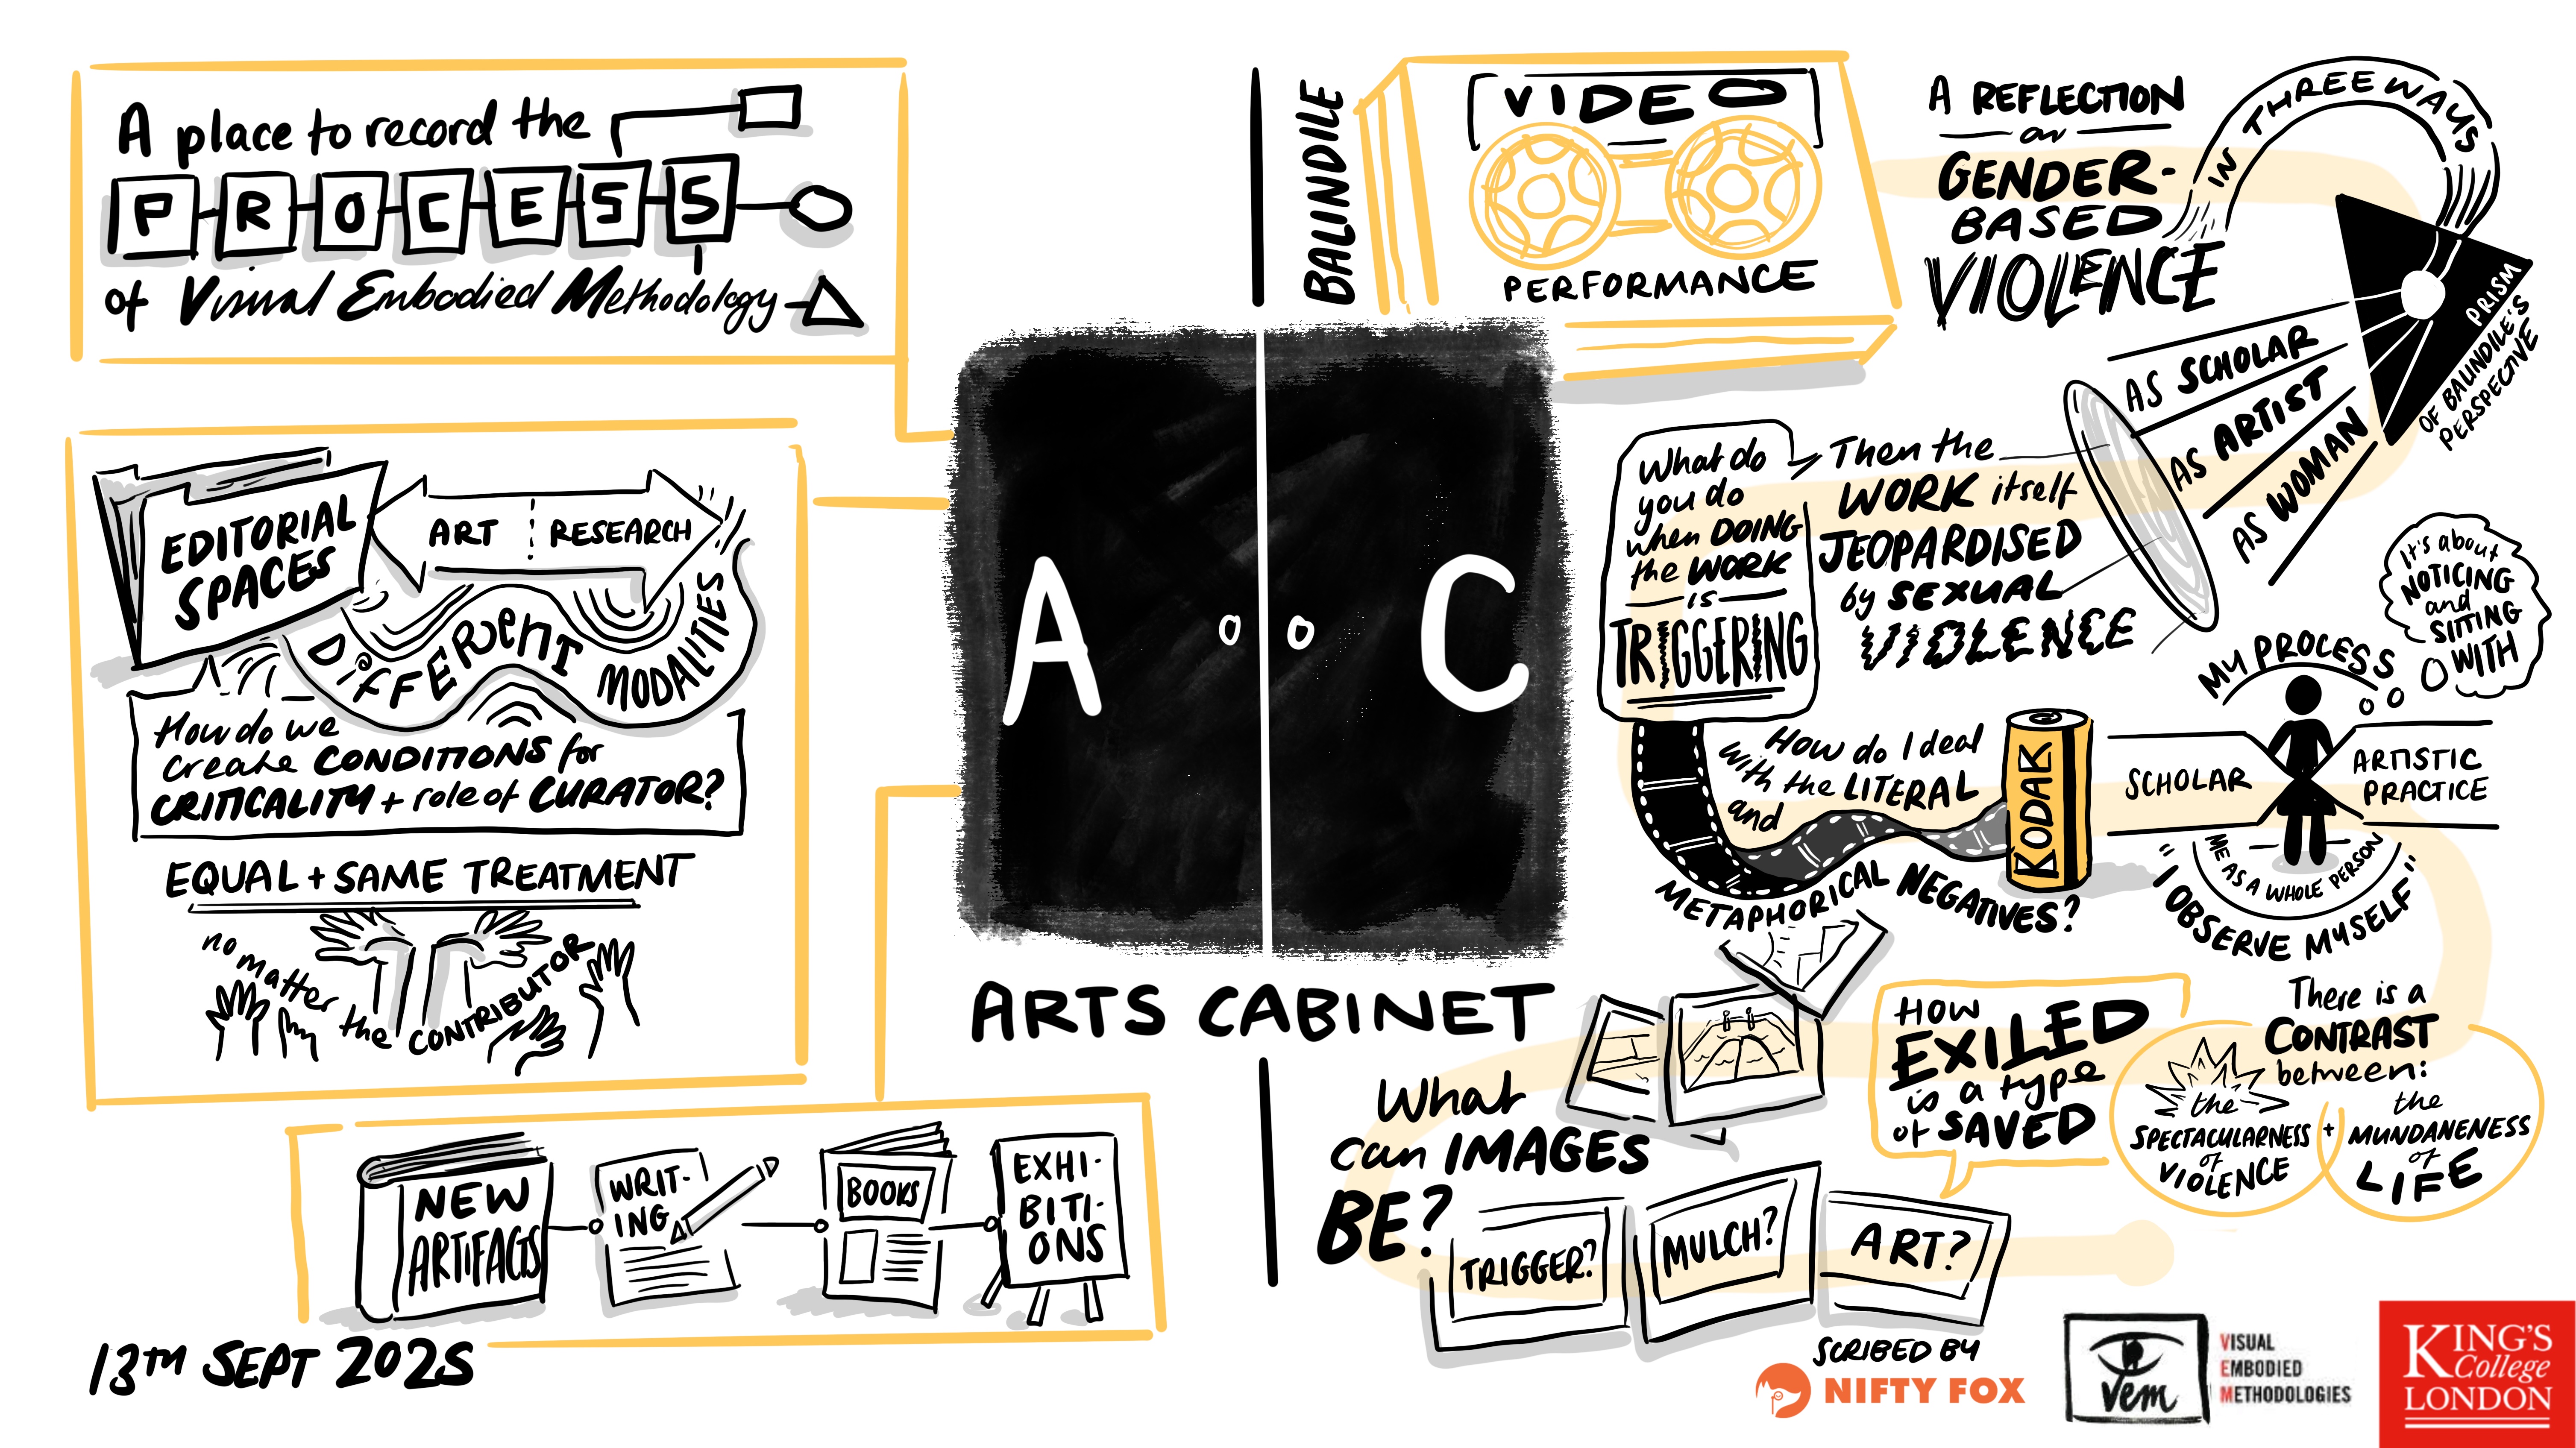 A place to record the
PROCESS
of Visual Embodied Methodology
EDITORIAL
SPACES
ART
RESEARCH
DIFFERENT MODALITIES
How do we
create CONDITIONS for
CRITICALITY + role of CURATOR?
EQUAL + SAME TREATMENT
no matter the CONTRIBUTOR
NEW
ARTIFACTS
WRIT-
ING
BOOKS
EXHI-
BITI-
ONS
13TH SEPT 2025
A C
ARTS CABINET
BALINDILE
VIDEO
PERFORMANCE
A REFLECTION
on
GENDER-
BASED
VIOLENCE
IN THREE WAYS
PRISM
OF BALINDILE'S
PERSPECTIVE
AS SCHOLAR
AS ARTIST
AS WOMAN
What do
you do
when DOING
the WORK
is
TRIGGERING
Then the
WORK itself
JEOPARDISED
by SEXUAL
VIOLENCE
How do I deal
with the LITERAL
and
METAPHORICAL NEGATIVES?
KODAK
It's about
NOTICING
and
SITTING
WITH
MY PROCESS
SCHOLAR
ARTISTIC
PRACTICE
ME AS A WHOLE PERSON
"I OBSERVE MYSELF"
There is a
CONTRAST
between:
the
SPECTACULARNESS
of
VIOLENCE
+
the
MUNDANENESS
of
LIFE
HOW
EXILED
is a type
of SAVED
What
can IMAGES
BE?
TRIGGER?
MULCH?
ART?
SCRIBED BY
NIFTY FOX
vem
VISUAL
EMBODIED
METHODOLOGIES
KING'S
College
LONDON